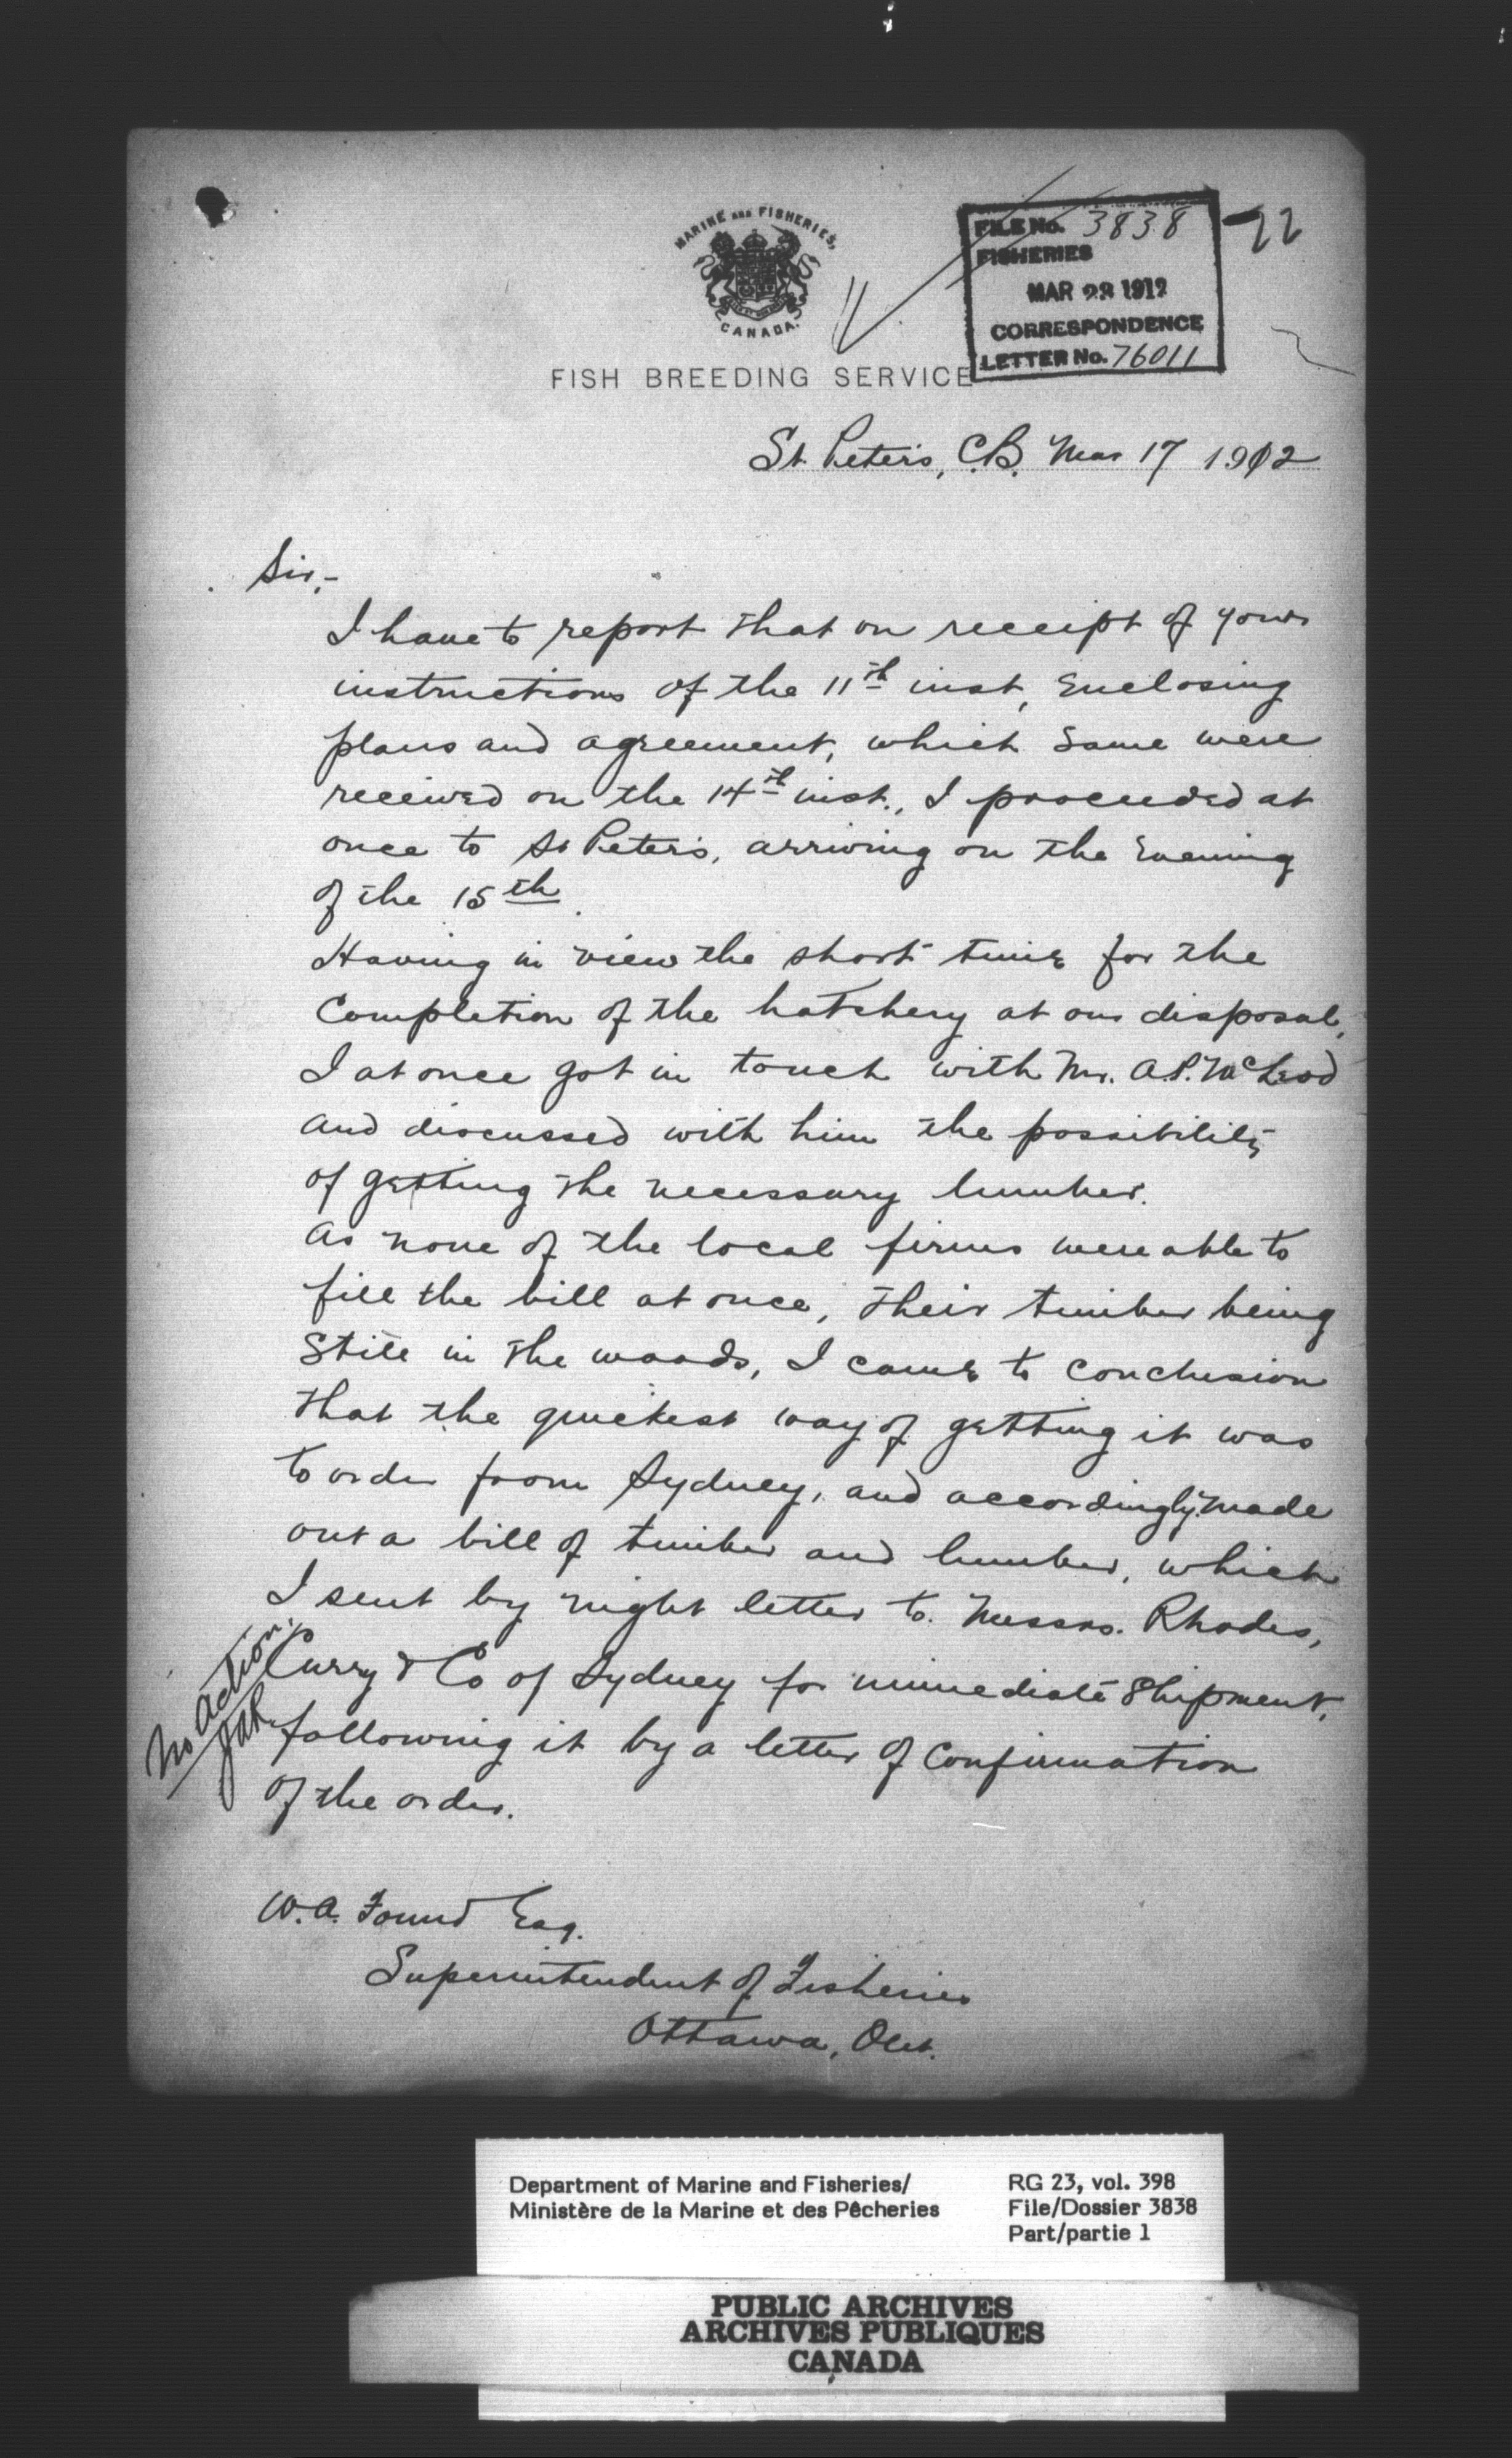 MARINE AND FISHERIES,
CANADA.
FISH BREEDING SERVICE
FILE No. 3838 -22
FISHERIES
MAR 28 1912
CORRESPONDENCE
LETTER No. 76011
St. Peter's, C.B. Mar 17 1912
Sir,-
I have to report that on receipt of your
instructions of the 11th inst, enclosing
plans and agreement, which same were
received on the 14th inst., I proceeded at
once to St Peter's, arriving on the evening
of the 15th.
Having in view the short time for the
Completion of the hatchery at our disposal,
I at once got in touch with Mr. A.P. McLeod
and discussed with him the possibility
of getting the necessary lumber.
As none of the local firms were able to
fill the bill at once, their timber being
still in the woods, I came to conclusion
that the quickest way of getting it was
to order from Sydney, and accordingly made
out a bill of timber and lumber, which
I sent by night letter to Messrs. Rhodes,
Curry & Co of Sydney for immediate shipment,
following it by a letter of confirmation
of the order.
No action.
W.A. Found Esq.
Superintendent of Fisheries
Ottawa, Ont.
Department of Marine and Fisheries/
Ministère de la Marine et des Pêcheries
RG 23, vol. 398
File/Dossier 3838
Part/partie 1
PUBLIC ARCHIVES
ARCHIVES PUBLIQUES
CANADA